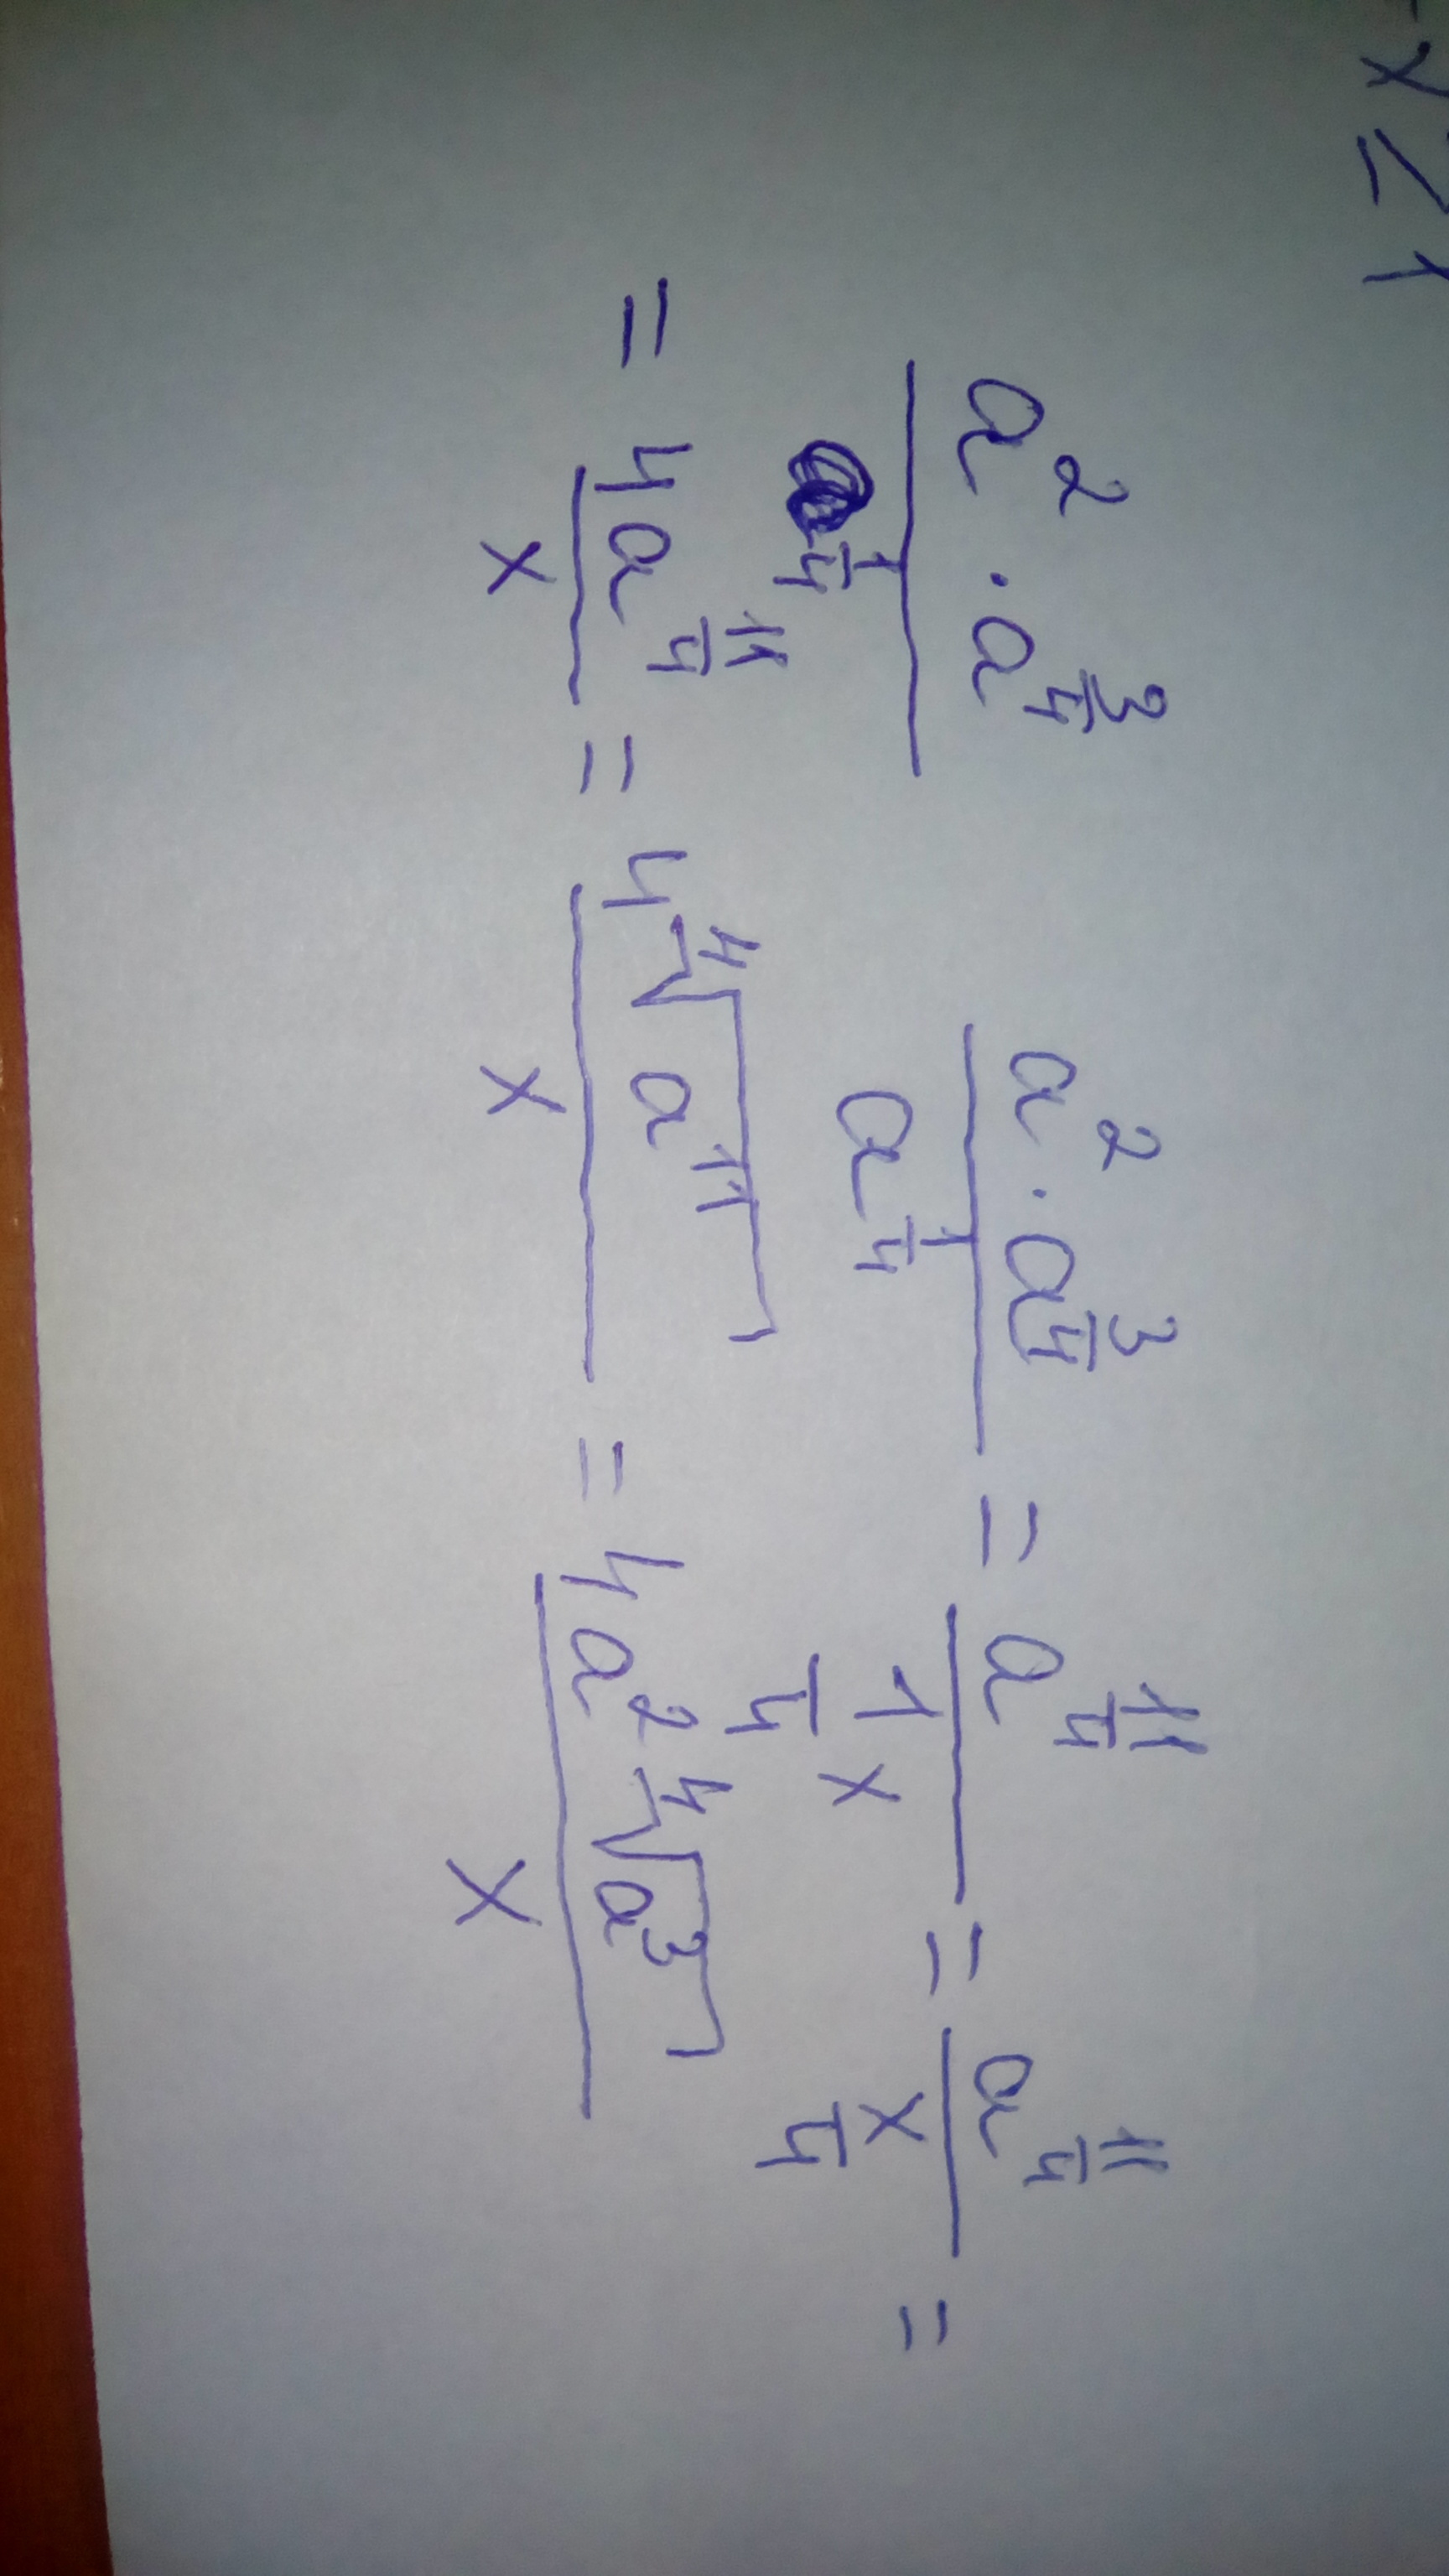 -x ≥ 1
(a^2 · a^(3/4)) / (a^(1/4))   (a^2 · a^(3/4)) / (a^(1/4)) = a^(11/4) / ((1/4) x) = a^(11/4) / (x/4) =
= (4a^(11/4)) / x = (4 ∜(a^11)) / x = (4a^2 ∜(a^3)) / x